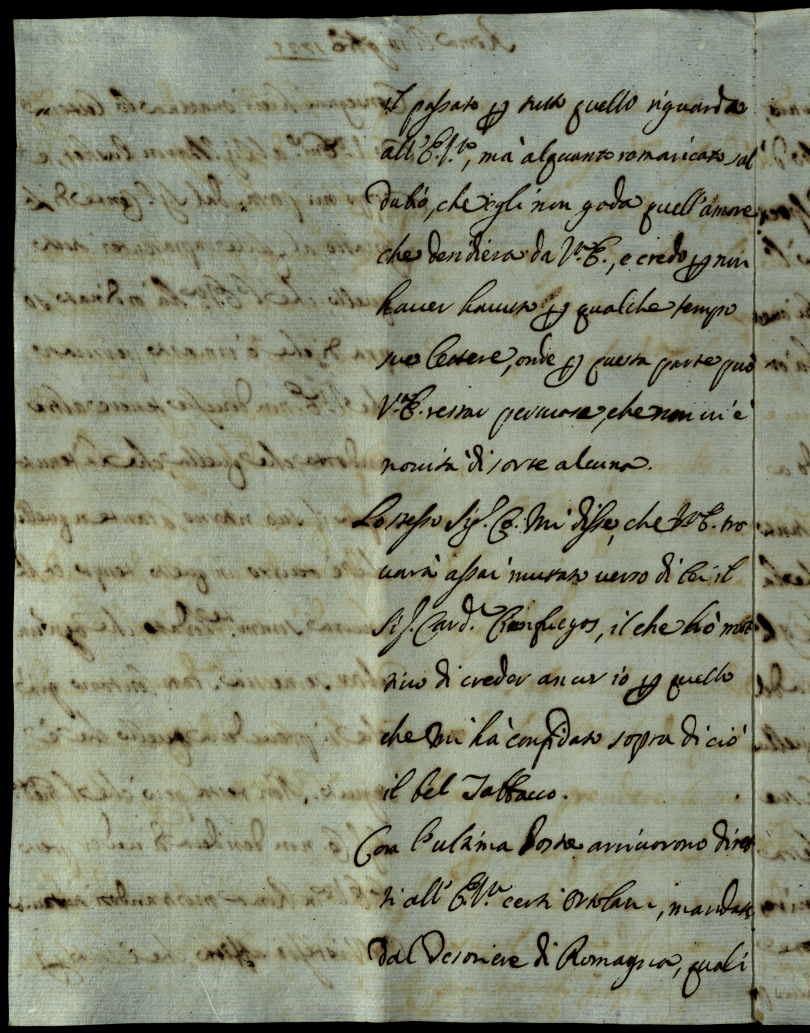 il passato p tutto quello riguarda
all'E.V., mà alquanto ramaricato sul
dubio, che egli non goda quell'amore,
che desidera da V.E., e credo p non
haver havuto p qualche tempo
sue lettere, onde p questa parte può
V.E. restar persuasa, che non vi è
novità di sorte alcuna.
Lo stesso Sig. Co. mi disse, che V.E. tro
varà assai mutato verso di lei il
Sig. Card. Cienfuegos, il che hò mot
tivo di creder ancor io p quello
che mi hà confidato sopra di ciò
il bel Tabbacco.
Con l'ultima Posta arrivorono diret
ti all'E.V. certi Ortolani, mandati
dal Tesoriere di Romagna, quali